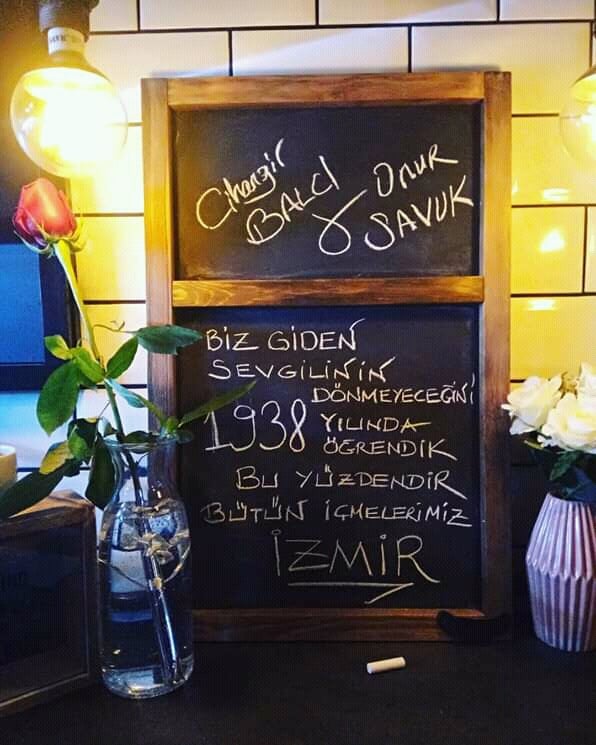 Cihangir ONUR
BALCI & SAVUK
BİZ GİDEN
SEVGİLİNİN
DÖNMEYECEĞİNİ
1938 YILINDA
ÖĞRENDİK
BU YÜZDENDİR
BÜTÜN İÇMELERİMİZ
İZMİR